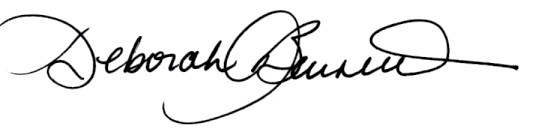 Deborah Bennett